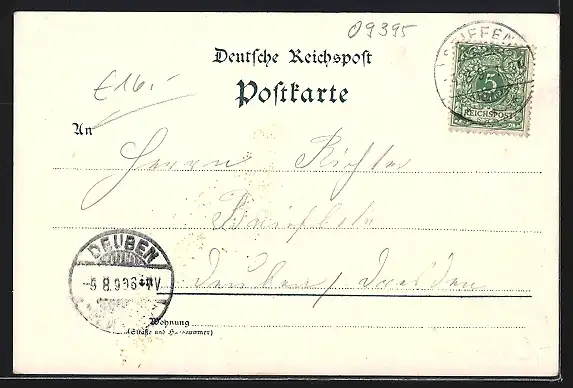 09395
Deutsche Reichspost
Postkarte
€16.-
An
Herrn Richter
Deuben / Dresden
Wohnung
(Straße und Hausnummer)
SEIFFEN
5
REICHSPOST
DEUBEN
-5 8.99 6-7 V